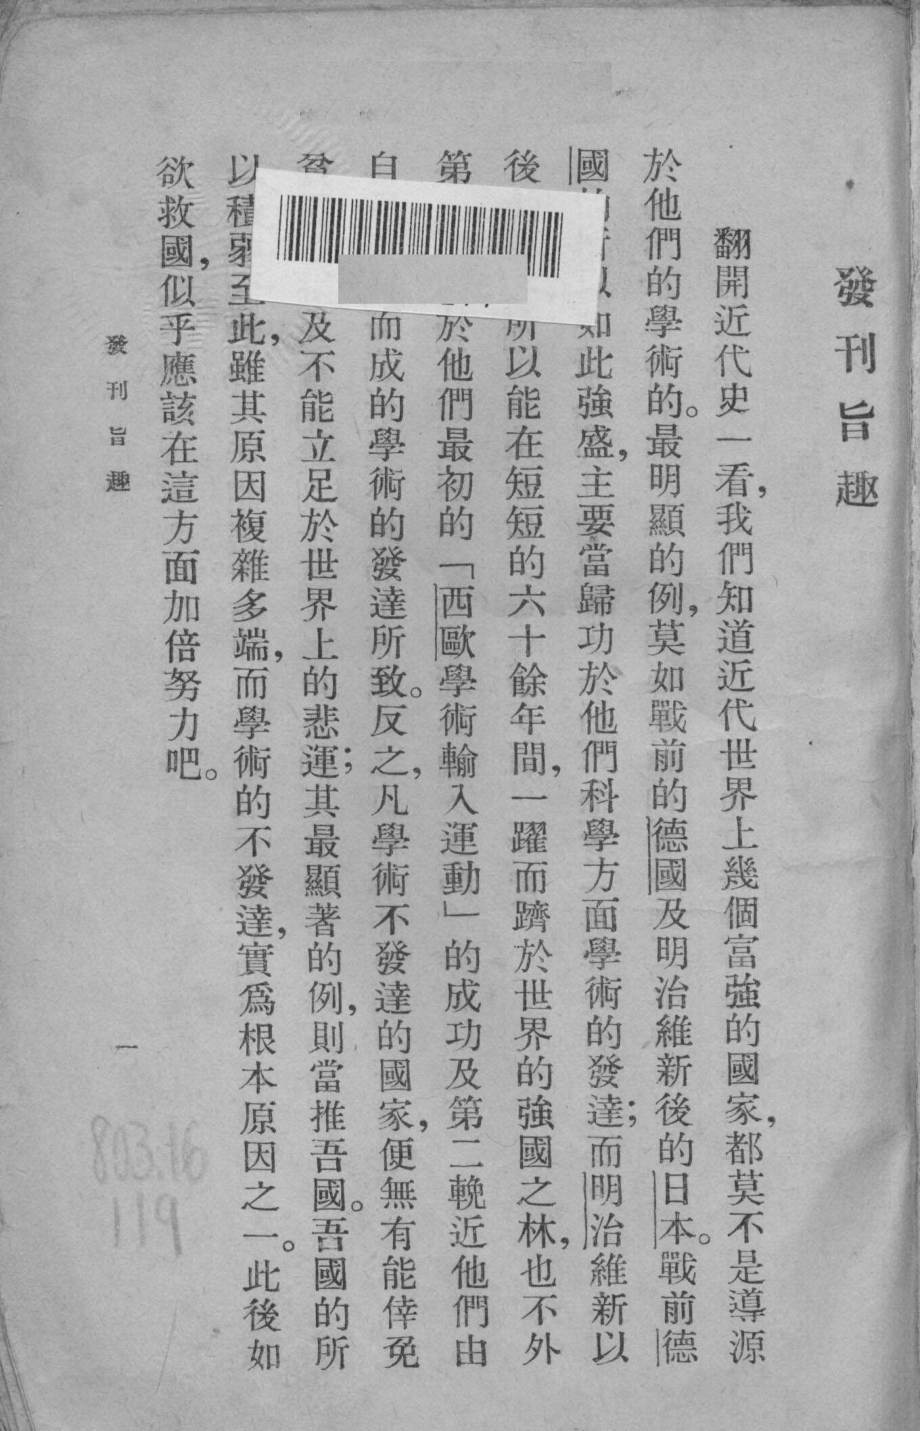 發刊旨趣
翻開近代史一看，我們知道近代世界上幾個富強的國家，都莫不是導源
於他們的學術的。最明顯的例，莫如戰前的德國及明治維新後的日本。戰前德
國的所以如此強盛，主要當歸功於他們科學方面學術的發達；而明治維新以
後所以能在短短的六十餘年間，一躍而躋於世界的強國之林，也不外
第於他們最初的「西歐學術輸入運動」的成功及第二輓近他們由
自而成的學術的發達所致。反之，凡學術不發達的國家，便無有能倖免
貧及不能立足於世界上的悲運；其最顯著的例，則當推吾國。吾國的所
以積弱至此，雖其原因複雜多端，而學術的不發達，實爲根本原因之一。此後如
欲救國，似乎應該在這方面加倍努力吧。
發刊旨趣
一
803.16
119